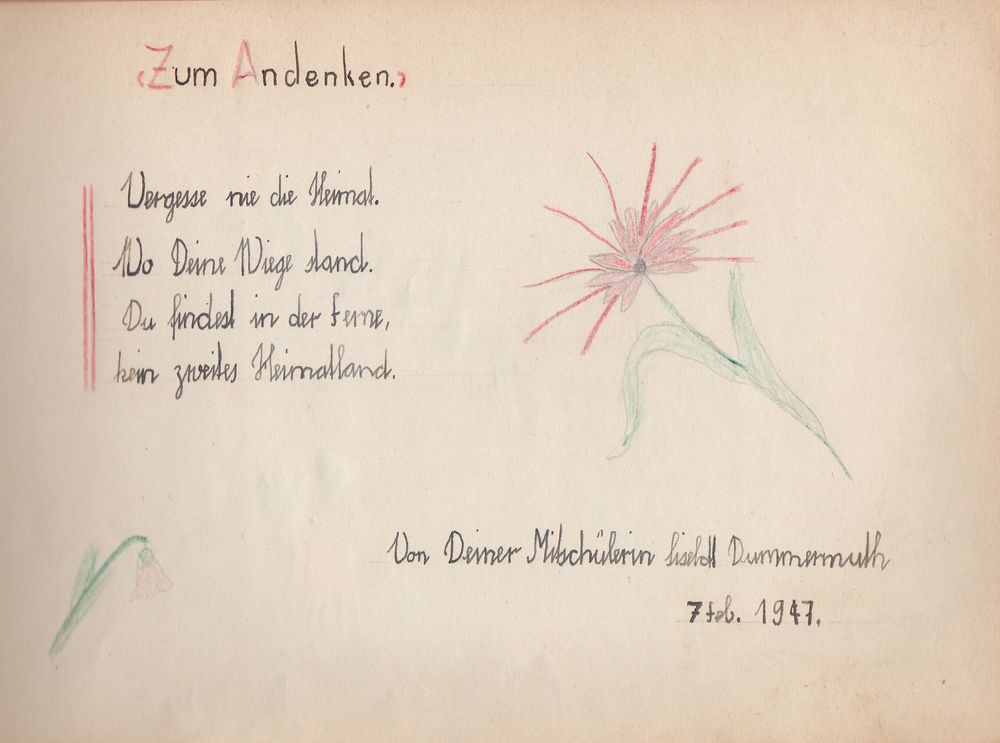 Zum Andenken.
Vergesse nie die Heimat.
Wo Deine Wiege stand.
Du findest in der Ferne,
kein zweites Heimatland.
Von Deiner Mitschülerin Liselott Dummermuth
7 Feb. 1947.